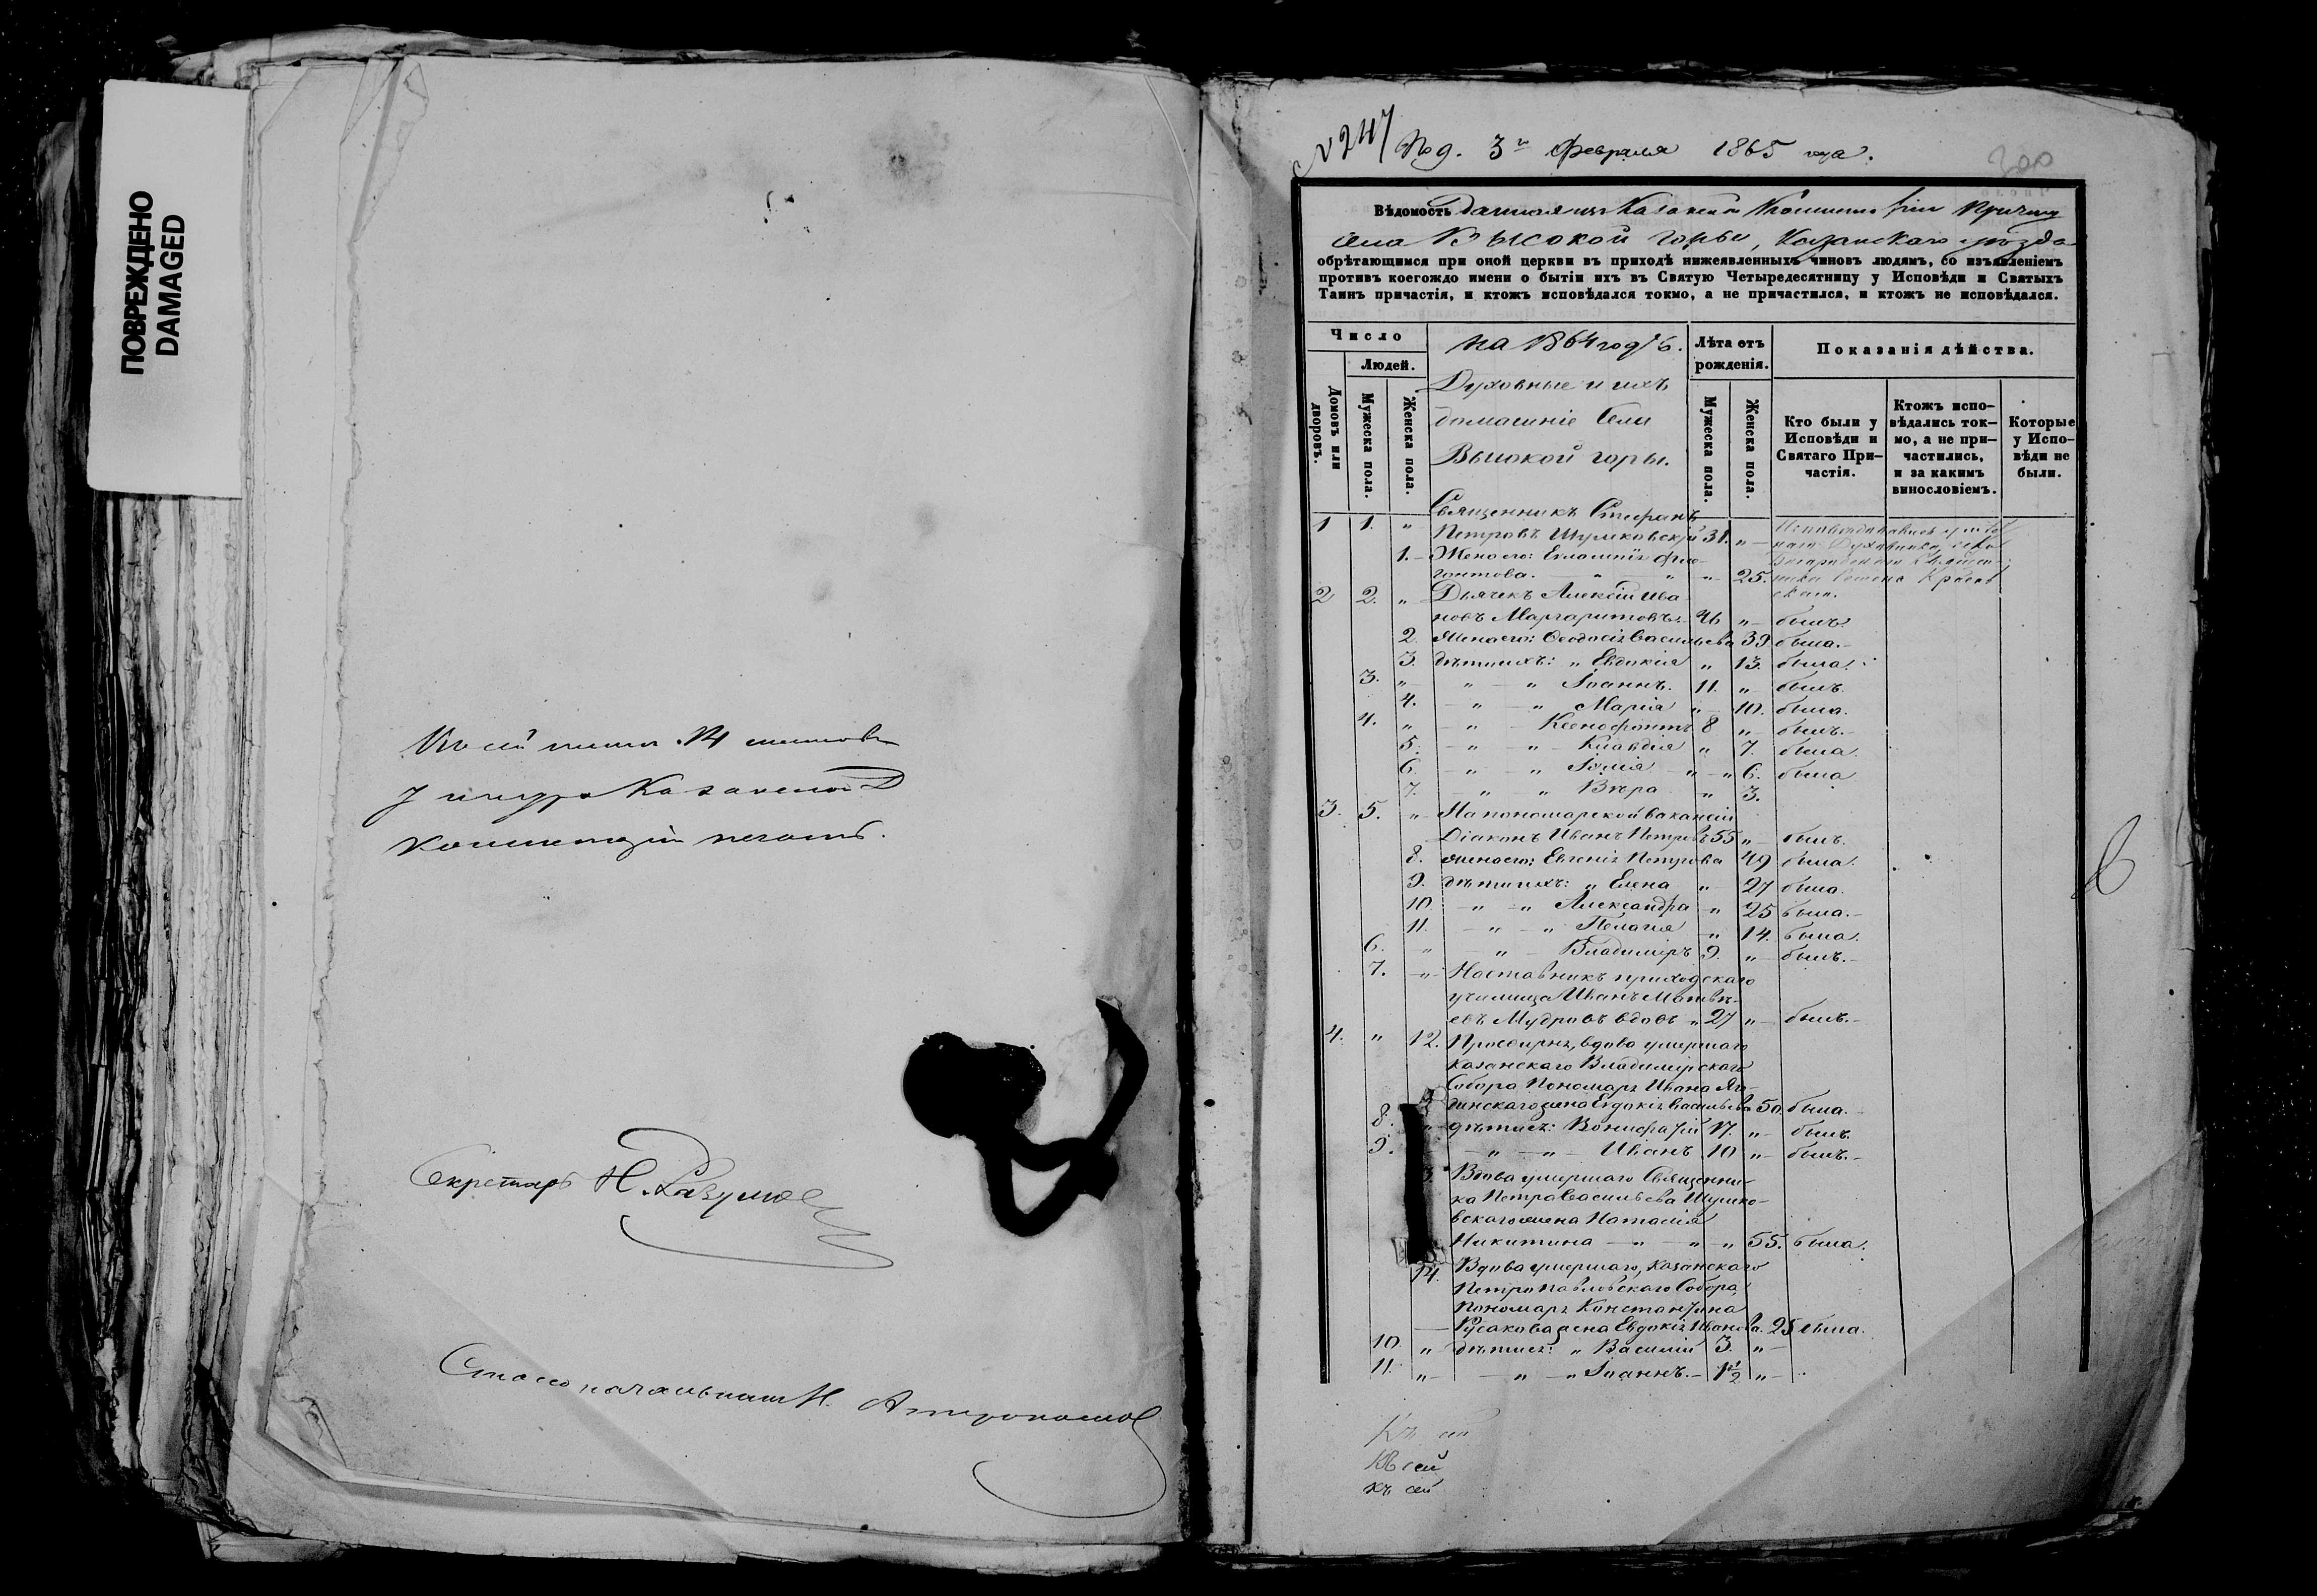 ПОВРЕЖДЕНО
DAMAGED
Къ сей
листовъ
Казанской Д
Консисторіи печать.
Секретарь Н. Разумов
Столоначальникъ Н.
№ 247 Под. 3го Февраля 1865 года.
200
Вѣдомость данная изъ Казанской Консисторіи причту
села Высокой горы, Казанскаго уѣзда
обрѣтающимся при оной церкви въ приходѣ нижеявленныхъ чиновъ людямъ, со изъявленіемъ
противъ коегождо имени о бытіи ихъ въ Святую Четыредесятницу у Исповѣди и Святыхъ
Таинъ причастія, и ктожъ исповѣдался токмо, а не причастился, и ктожъ не исповѣдался.
Число
Людей.
Домовъ или дворовъ.
Мужеска пола.
Женска пола.
на 1864 годъ.
Духовные и ихъ
домашніе села
Высокой горы.
Лѣта отъ
рожденія.
Мужеска пола.
Женска пола.
Показанія дѣйства.
Кто были у
Исповѣди и
Святаго При-
частія.
Ктожъ испо-
вѣдались ток-
мо, а не при-
частились,
и за какимъ
винословіемъ.
Которые
у Испо-
вѣди не
были.
Священникъ Стефанъ
1 1. " Петровъ Шумковскій 31. "
1. Жена его: Евлампія
25.
2 2. " Дьячекъ Алексій Ива
новъ Маргаритовъ 46 " былъ.
2. Жена его: Ѳеодосія Васильева 39 была.
3. дѣти ихъ: " Евдокія " 13. была.
3. " " " Іоаннъ. 11. " былъ.
4. " " Марія " 10. была.
4. " " Ксенофонтъ 8 " былъ.
5. " " Клавдія " 7. была.
6. " " Юлія " " 6. была
7. " " Вѣра " 3.
3. 5. " На пономарской вакансіи
Діаконъ Иванъ Петровъ 55 " былъ.
8. Жена его: Евгенія Петрова 49 была.
9. дѣти ихъ: " Елена " 27 была.
10. " " Александра " 25 была.
11. " " Пелагія " 14. была.
6. " " Владиміръ 9. " былъ.
7. " Наставникъ приходскаго
училища Иванъ Матвѣ-
евъ Мудровъ вдовъ " 27 " былъ.
4. " 12. Просвирня, вдова умершаго
Казанскаго Владимірскаго
Собора Пономаря Ивана Яго-
динскаго жена Евдокія Васильева 50. была.
8. " дѣти ея: Вонифатій 17. " былъ.
9. " " Иванъ 10 " былъ.
3. Вдова умершаго Священни-
ка Петра Васильева Шумко-
вскаго жена Наталія
Никитина " " " 55. была.
14. Вдова умершаго, Казанскаго
Петропавловскаго Собора
Пономаря Константина
Русакова жена Евдокія Иванова. 25 была.
10. " дѣти ея: " Василій 3. "
11. " " " Іоаннъ. 1 1/2 "
Къ сей
Къ сей
къ сей